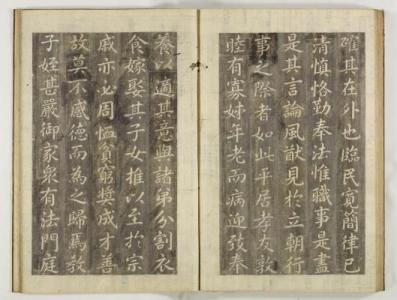 確其在外也臨民寬簡律已
清慎恪勤奉法惟職事是盡
是其言論風猷見於立朝行
事之際者如此平居孝友敦
睦有寡姊年老而病迎致奉
養以適其意與諸弟分割衣
食嫁娶其子女推以至於宗
戚亦必周恤貧窮奬成才善
故莫不感德而為之歸焉教
子姪甚嚴御家衆有法門庭